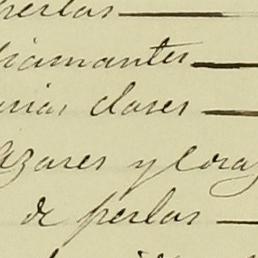 perlas
diamantes
varias clases
azares y coraz
de perlas